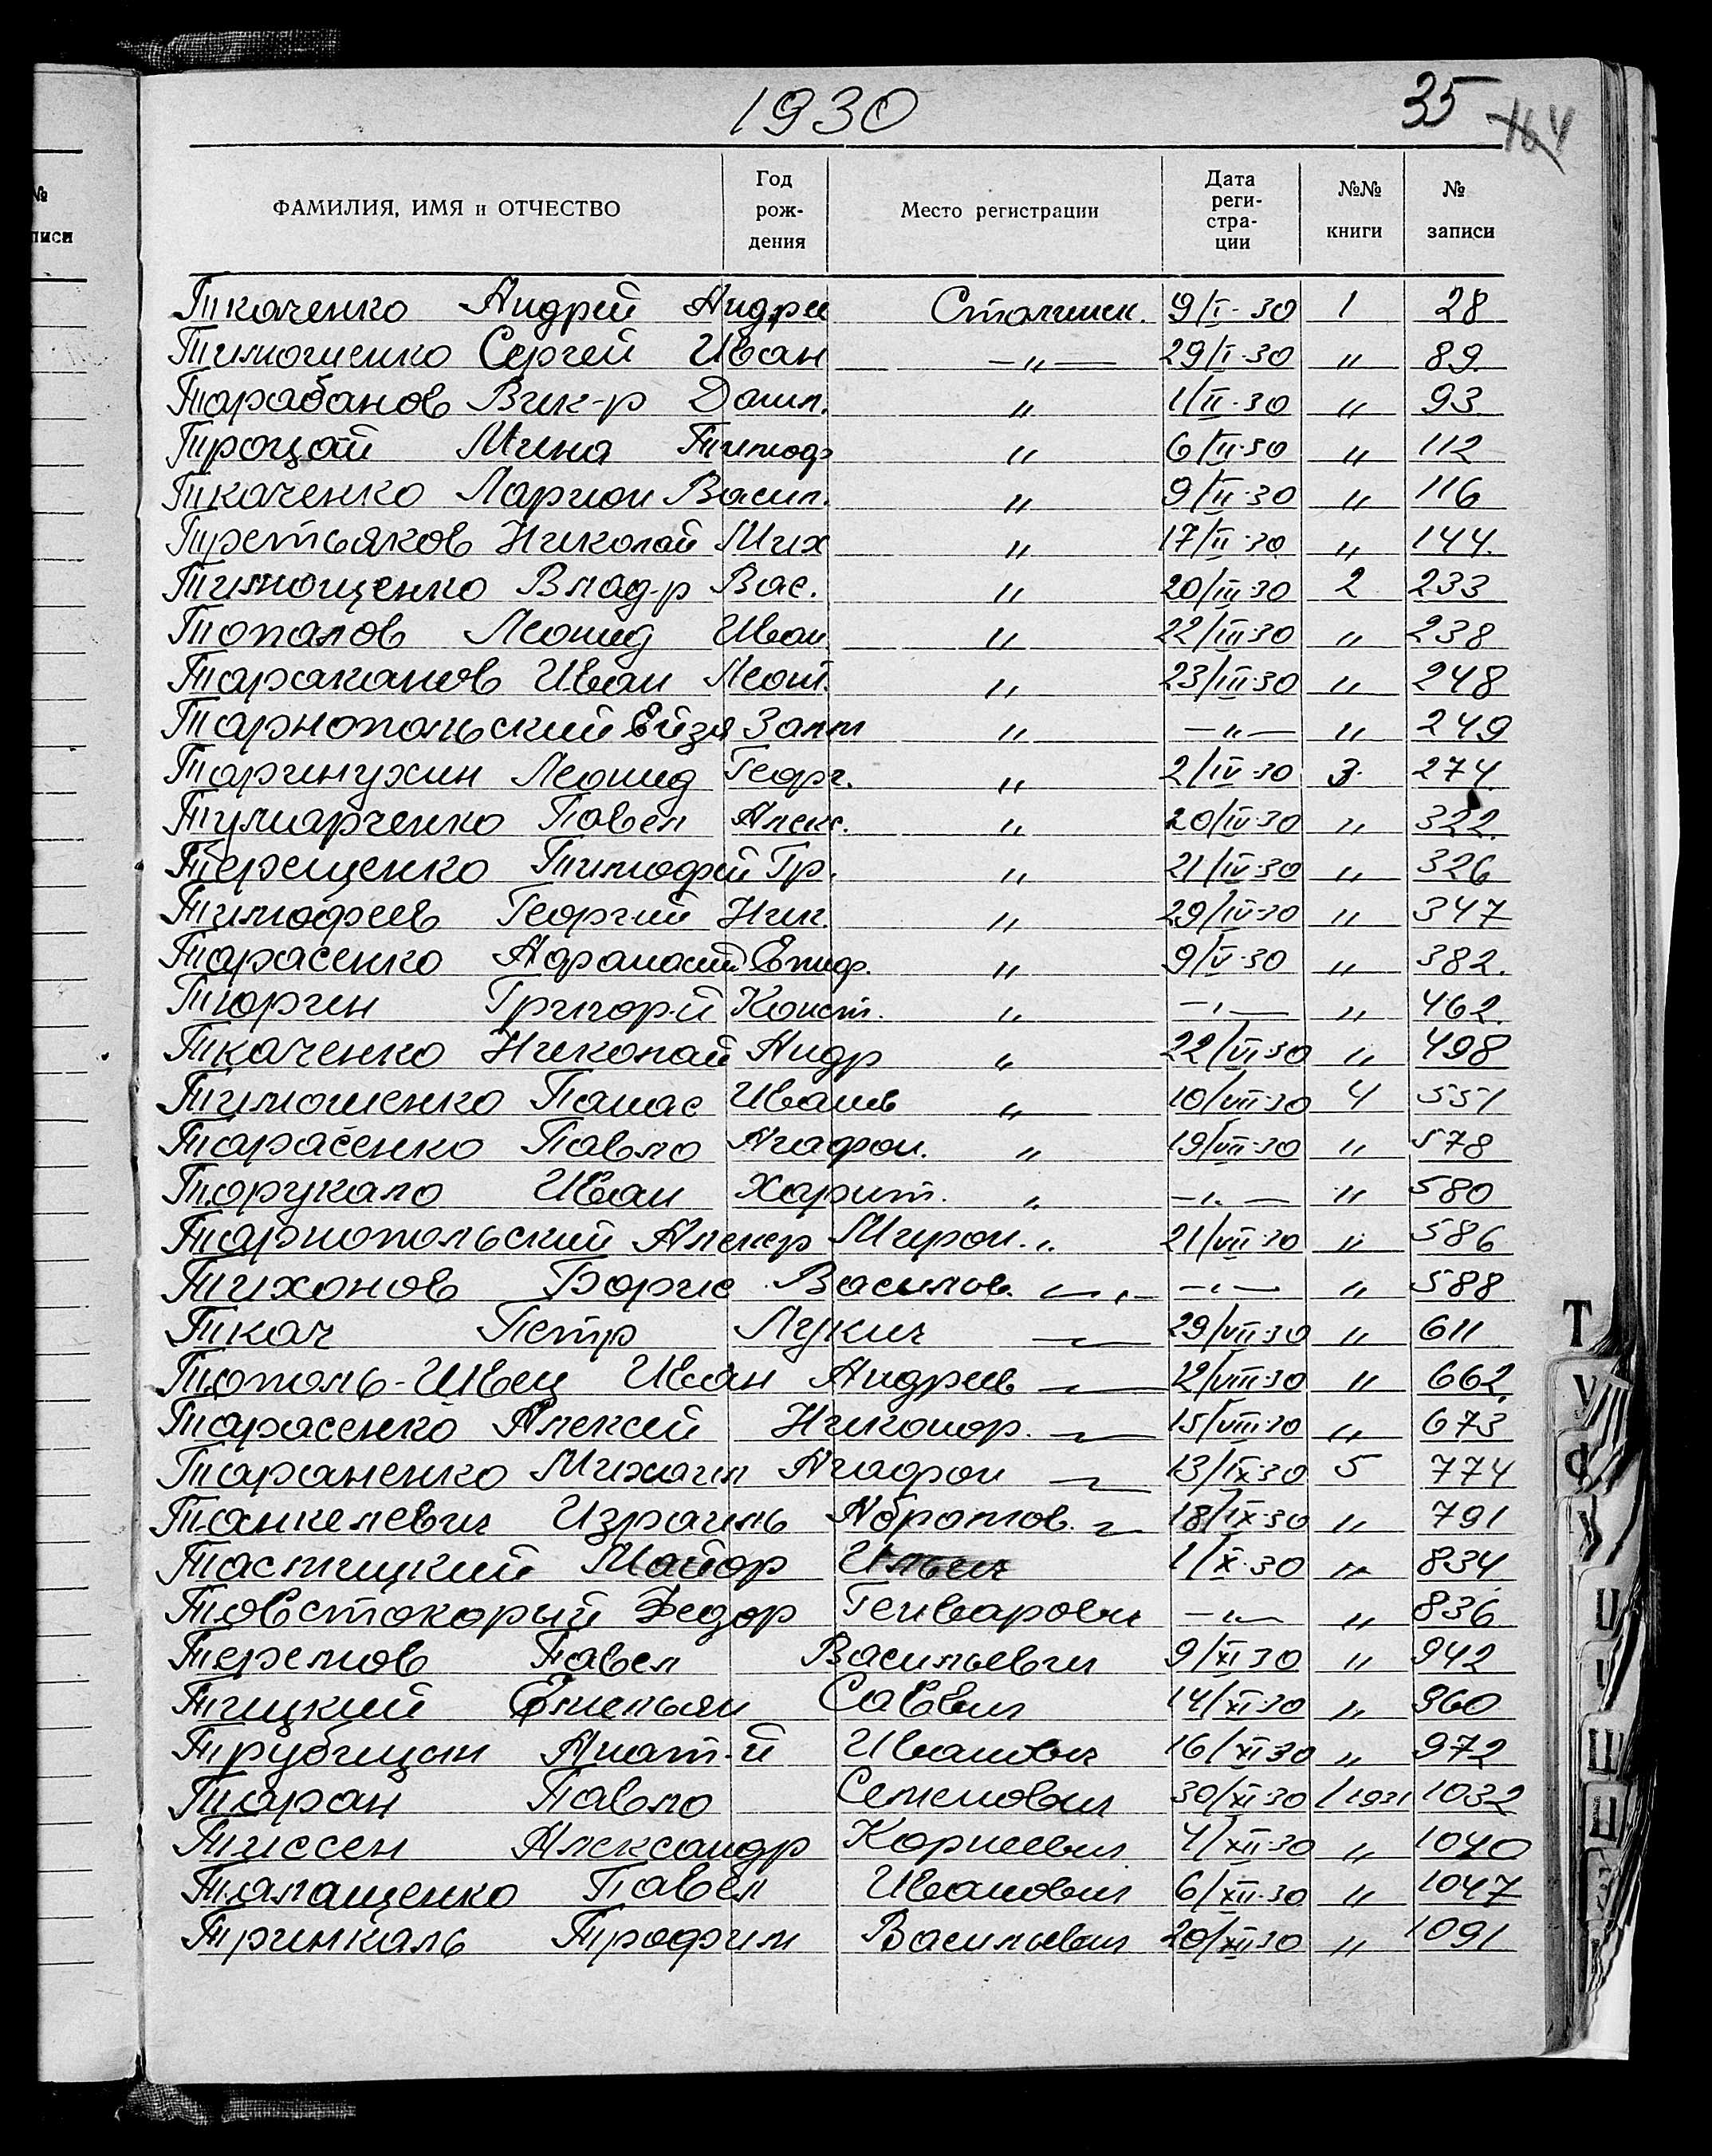 1930 35 164
ФАМИЛИЯ, ИМЯ и ОТЧЕСТВО Год рож-дения Место регистрации Дата реги-стра-ции №№ книги № записи
Ткаченко Андрей Андре Сталинск. 9/I-30 1 28
Тимошенко Сергей Иван —〃— 29/I-30 〃 89.
Тарабанов Вик-р Дани. 〃 1/II-30 〃 93
Троцай Мина Тимоф 〃 6/II-30 〃 112
Ткаченко Ларион Васил. 〃 9/II-30 〃 116
Третьяков Николай Мих 〃 17/II-30 〃 144.
Тимощенко Влад-р Вас. 〃 20/III-30 2 233
Топалов Леонид Иван. 〃 22/III-30 〃 238
Тараканов Иван Леон. 〃 23/III-30 〃 248
Тарнопольский Ейзя Залм 〃 —〃— 〃 249
Таринухин Леонид Георг. 〃 2/IV-30 3. 274.
Тумарченко Павел Алекс. 〃 20/IV-30 〃 322.
Терещенко Тимофей Гр. 〃 21/IV-30 〃 326
Тимофеев Георгий Ник. 〃 29/IV-30 〃 347
Тарасенко Афанасий Епиф. 〃 9/V-30 〃 382.
Тюрин Григорий Конст. 〃 —〃— 〃 462.
Ткаченко Николай Андр 〃 22/VI-30 〃 498
Тимошенко Панас Иванов 〃 10/VII-30 4 551
Тарасенко Павло Агафон. 〃 19/VII-30 〃 578
Торукало Иван Харит. 〃 —〃— 〃 580
Тарнопольский Алекср Мирон. 〃 21/VII-30 〃 586
Тихонов Борис Васильев. —〃— —〃— 〃 588
Ткач Петр Лукич — 29/VII-30 〃 611
Тополь-Швец Иван Андреев — 12/VIII-30 〃 662.
Тарасенко Алексей Никонор. — 15/VIII-30 〃 673
Тараненко Михаил Агафон — 13/IX-30 5 774
Танкелевич Израиль Абрамов. — 18/IX-30 〃 791
Тастицкий Майор Ильич 1/X-30 〃 834
Товстокорый Федор Генварович —〃— 〃 836
Теремов Павел Васильевич 9/XI 30 〃 942
Тицкий Емельян Саввич 14/XI-30 〃 960
Трубицын Анат-й Иванович 16/XI 30 〃 972
Таран Павло Семенович 30/XI-30 1 1931 1032
Тиссен Александр Корнеевич 4/XII-30 〃 1040
Талащенко Павел Иванович 6/XII-30 〃 1047
Тринкаль Трофим Васильевич 20/XII 30 〃 1091
№
писи
Т
У
Ф
Х
Ц
Ш